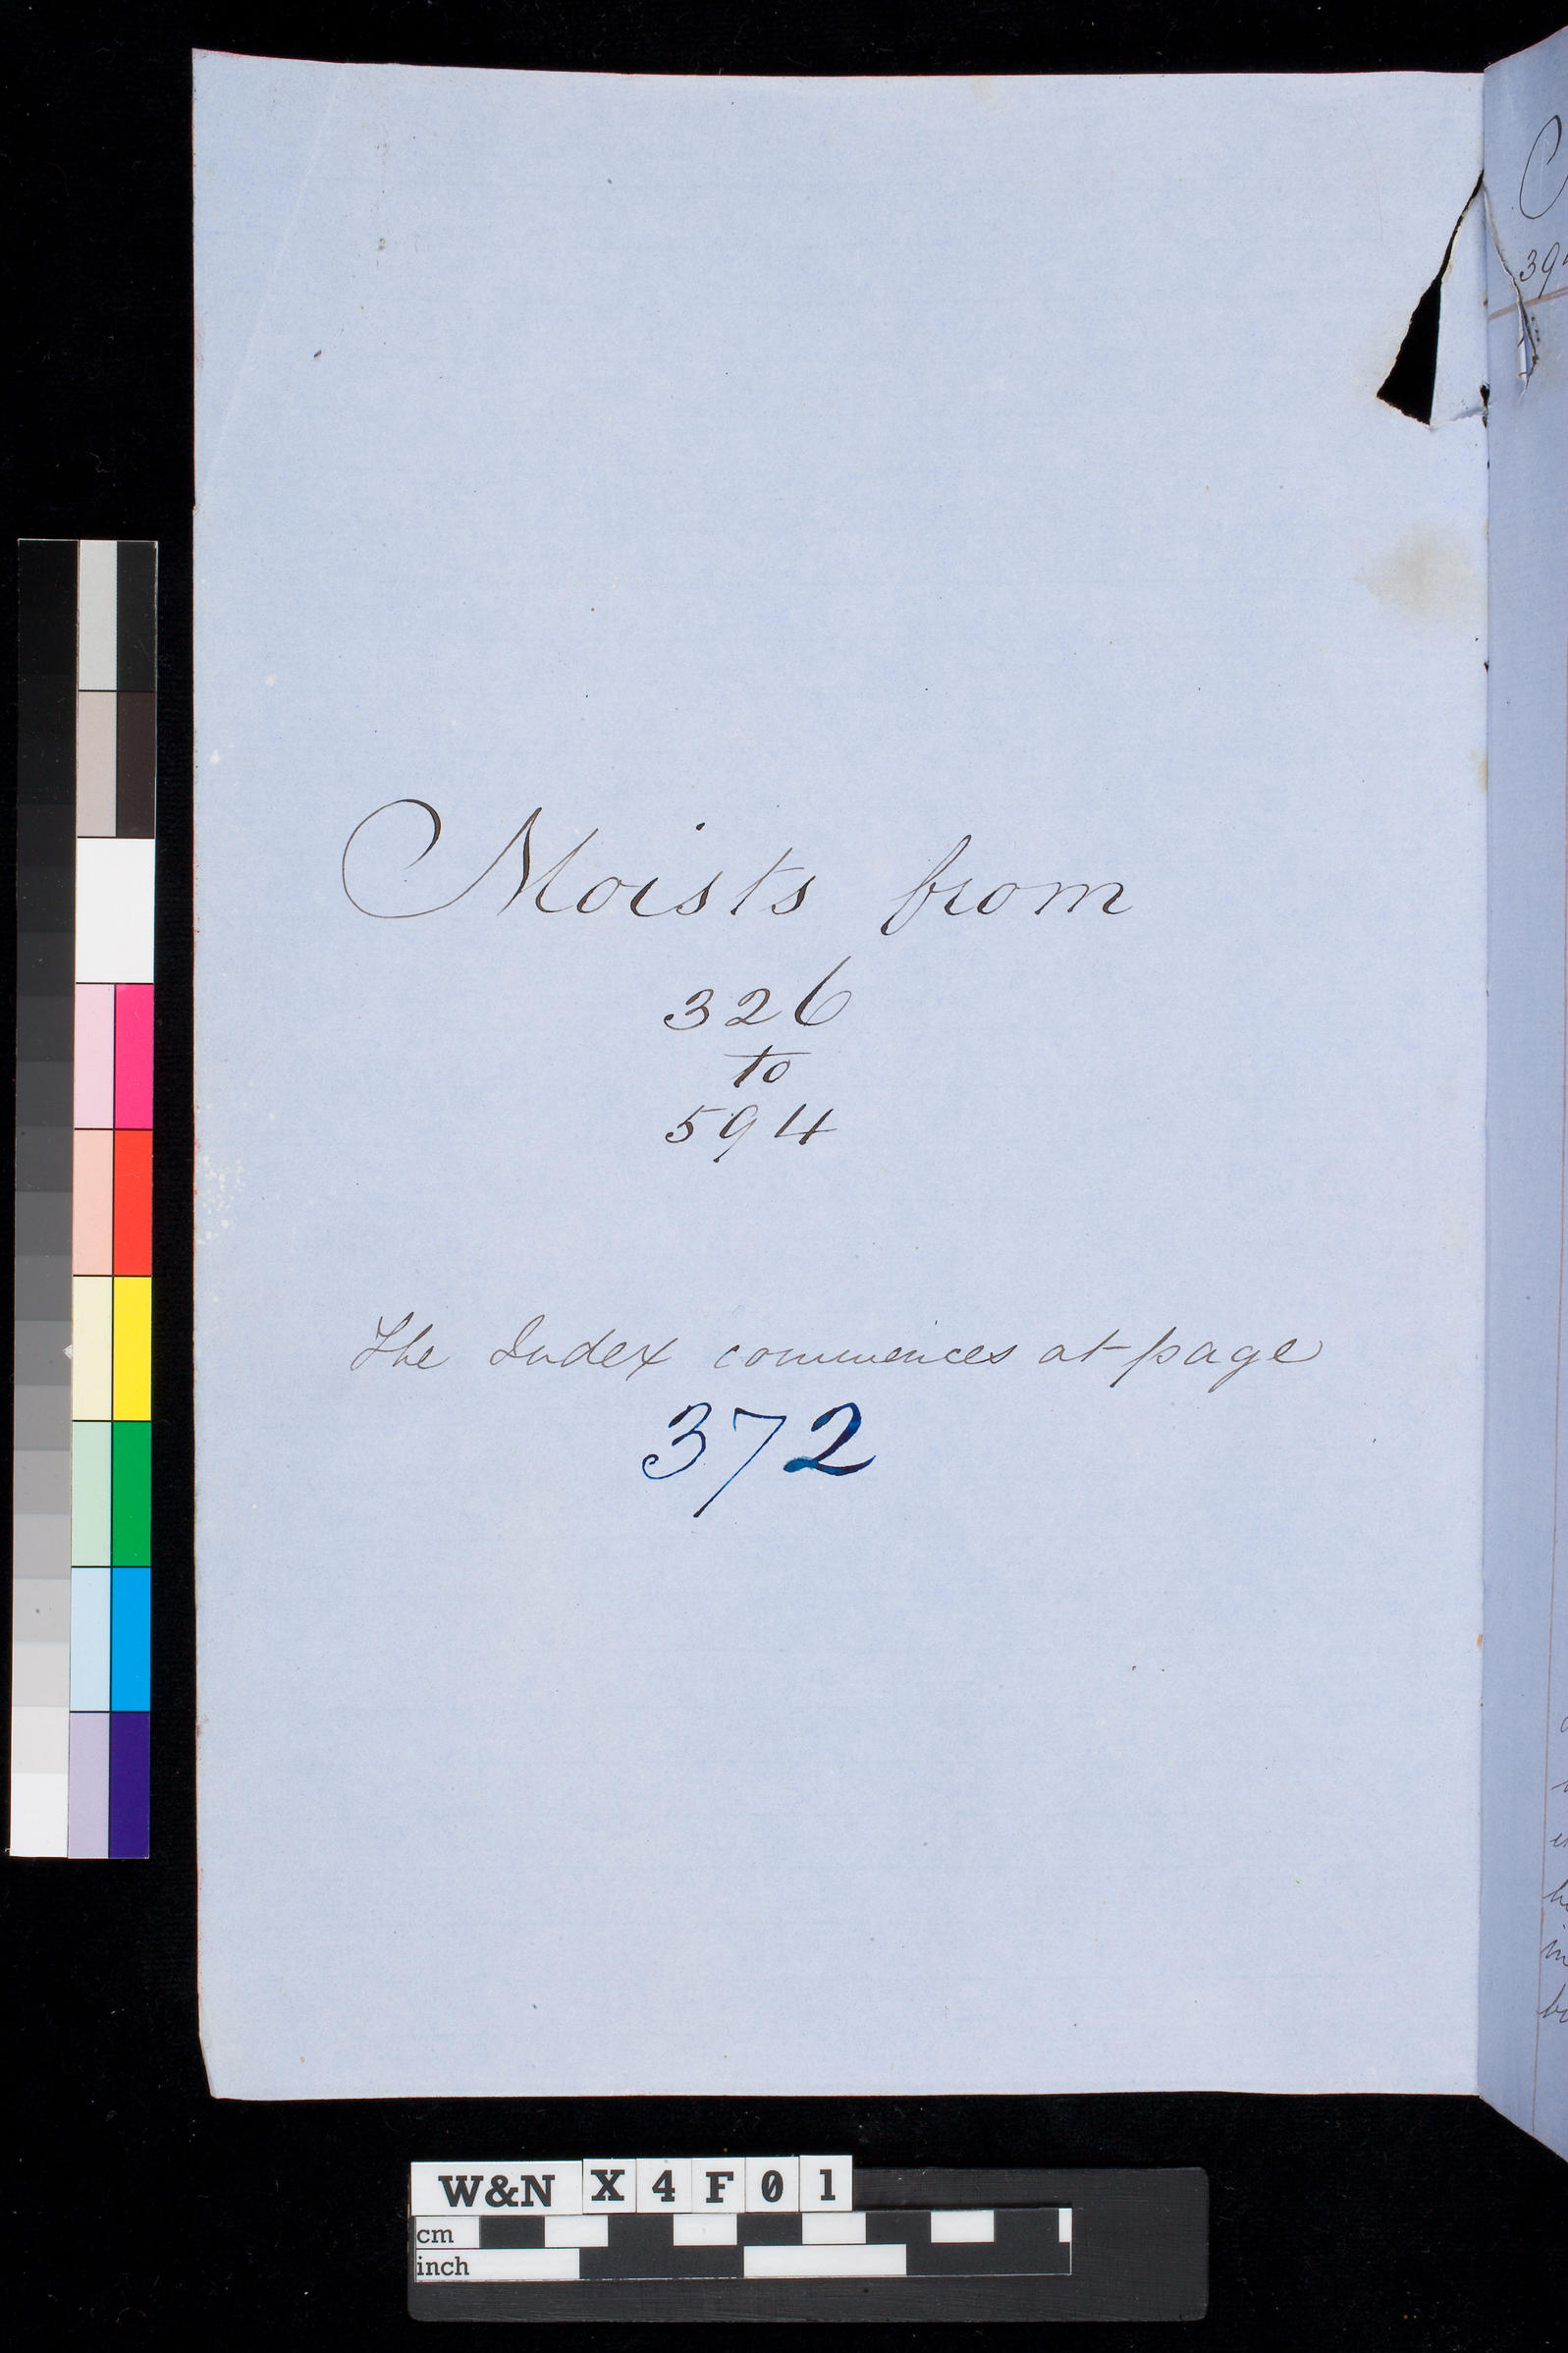 Moists from
326
to
594
The Index commences at page
372
W&N X 4 F 0 1
cm
inch